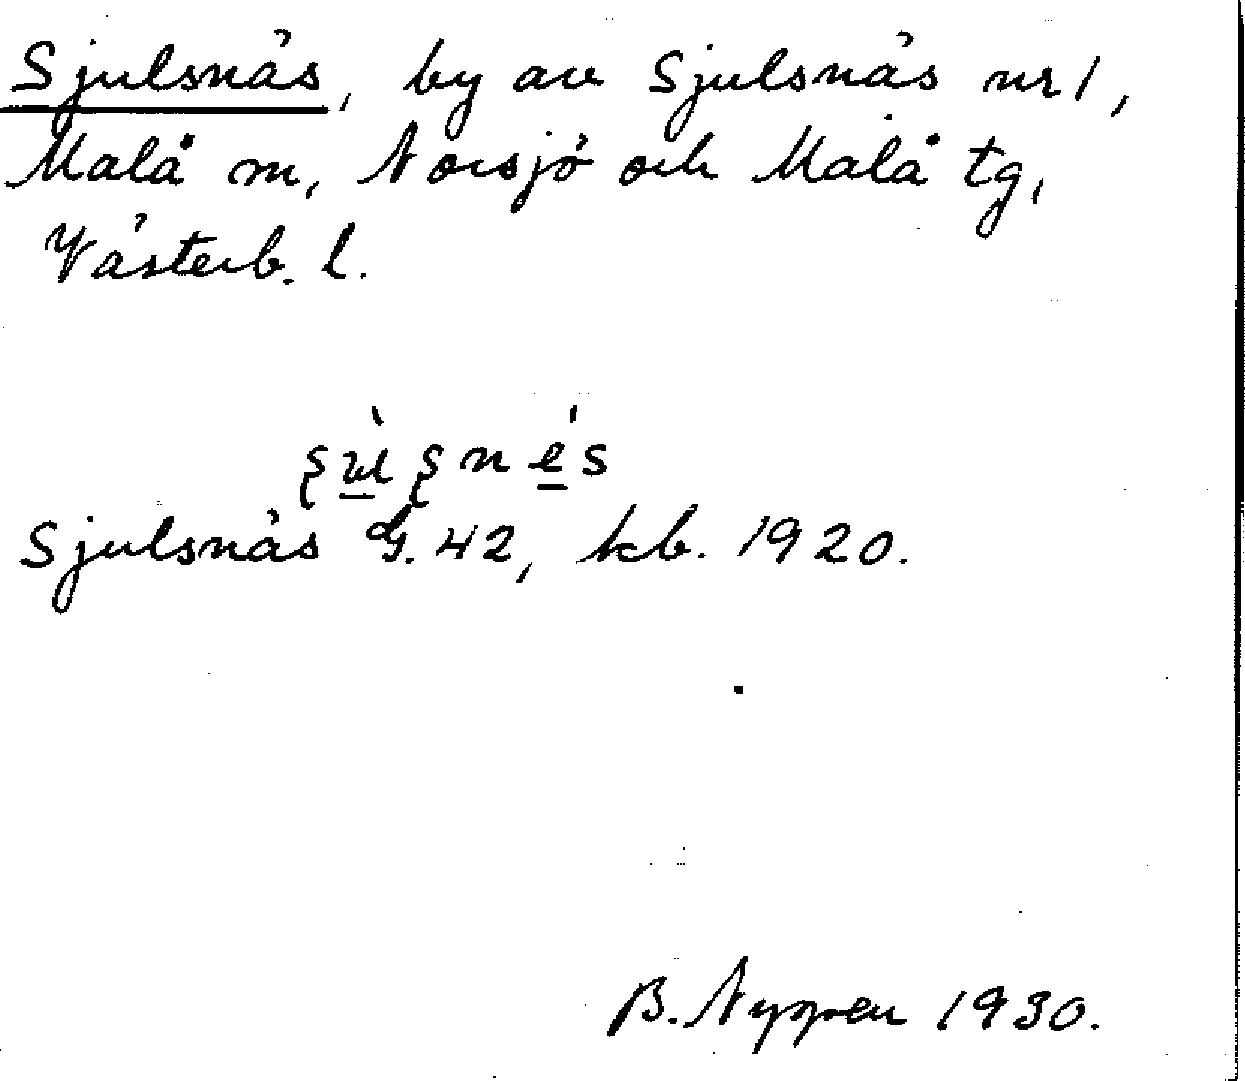 Sjulsnäs, by av Sjulsnäs nr 1,
Malå sn, Norsjö och Malå tg,
Västerb. l.
Sjulsnäs G. 42, kb. 1920.
1930.